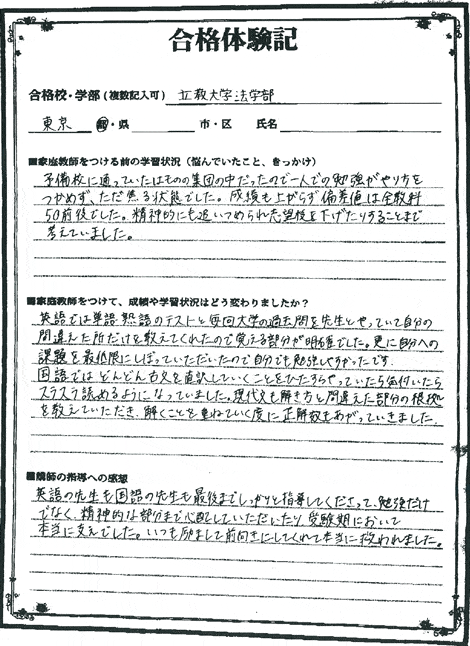 合格体験記
合格校・学部(複数記入可) 立教大学法学部
東京 都・県 市・区 氏名
■家庭教師をつける前の学習状況(悩んでいたこと、きっかけ)
予備校に通っていたはものの集団の中だったので一人での勉強がやり方を
つかめず、ただ焦る状態でした。成績も上がらず偏差値は全教科
50前後でした。精神的にも追いつめられ志望校を下げたりすることまで
考えていました。
■家庭教師をつけて、成績や学習状況はどう変わりましたか?
英語では単語・熟語のテストと毎回大学の過去問を先生とやっていて自分の
間違えた所だけを教えてくれたので覚える部分が明確でした。更に自分への
課題を最低限にしぼっていただいたので自分でも勉強しやすかったです。
国語ではどんどん古文を直訳していくことをひたすらやっていたら気付いたら
スラスラ読めるようになっていました。現代文も解き方と間違えた部分の根拠
を教えていただき、解くことを重ねていく度に正解数もあがっていきました。
■講師の指導への感想
英語の先生も国語の先生も最後までしっかりと指導してくださって、勉強だけ
でなく、精神的な部分まで心配していただいたり、受験期において
本当に支えでした。いつも励まして前向きにしてくれて本当に救われました。